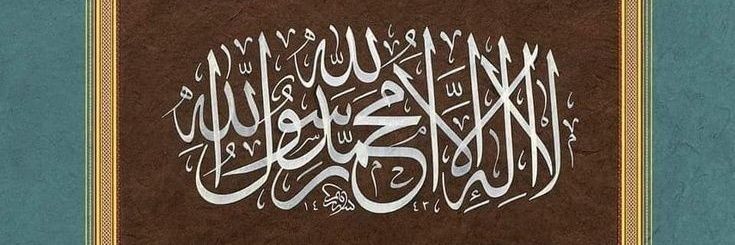 لا إله إلا الله محمد رسول الله
١٤٤٣